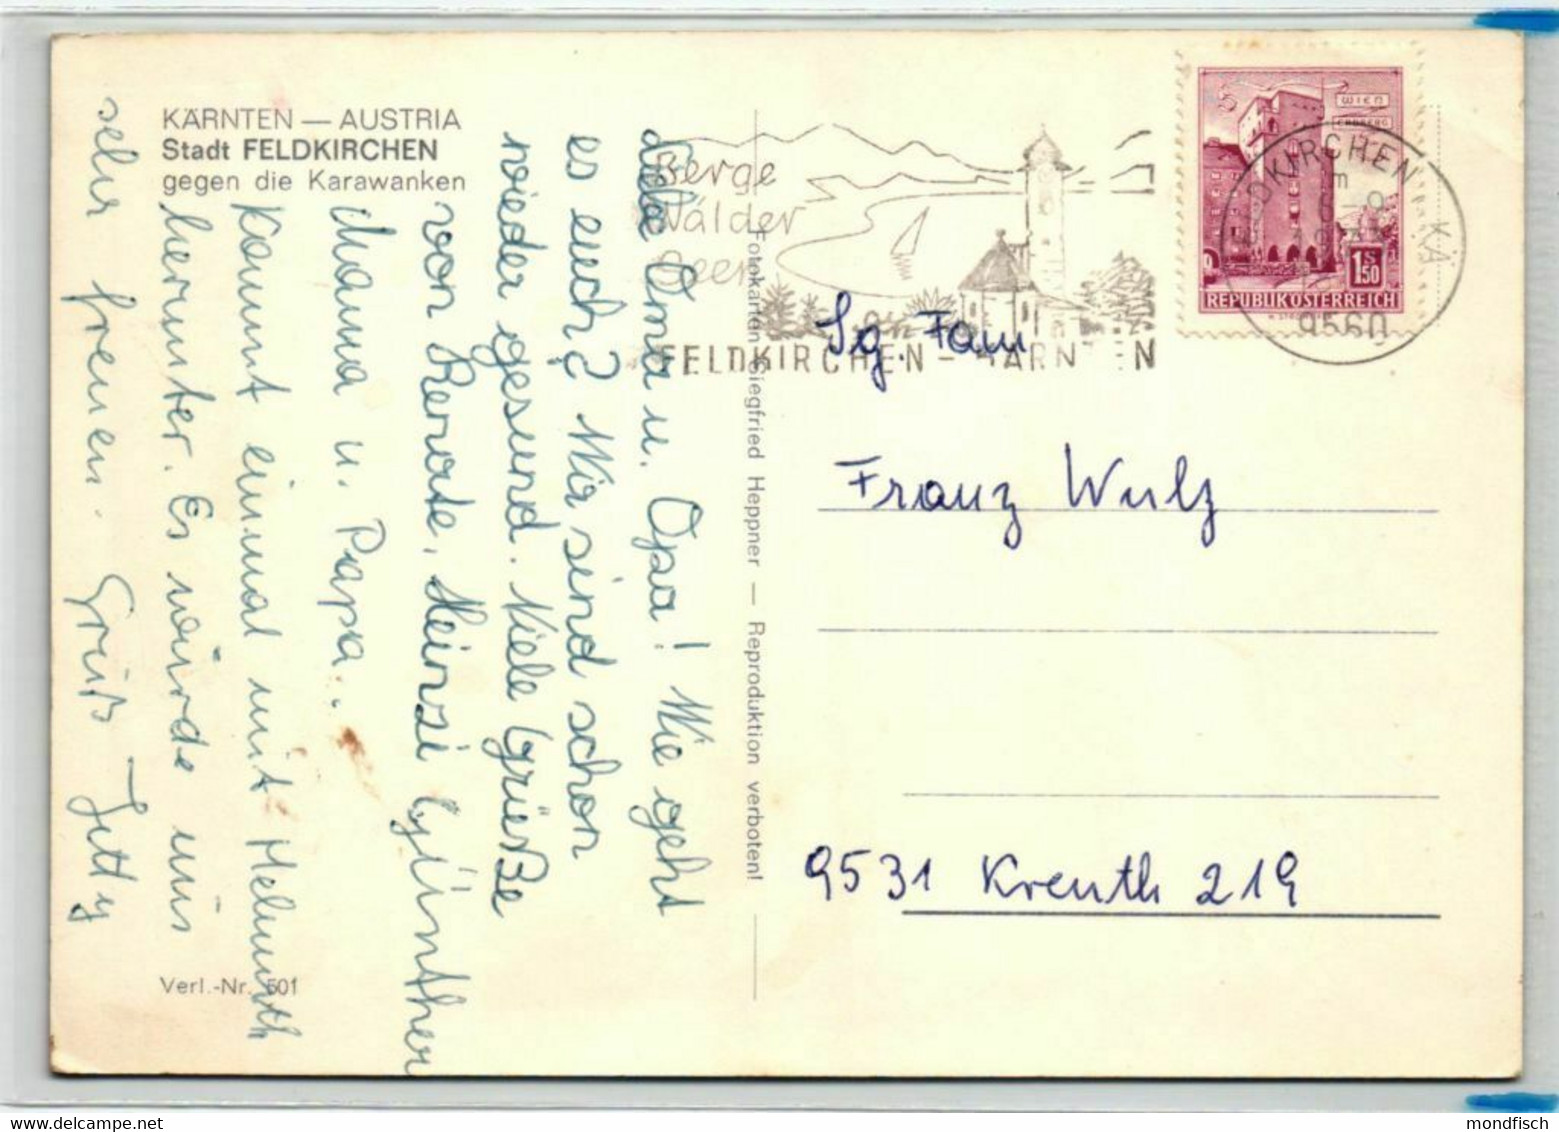 KÄRNTEN — AUSTRIA
Stadt FELDKIRCHEN
gegen die Karawanken
Liebe Oma u. Opa! Wie geht
es euch? Wir sind schon
wieder gesund. Viele Grüße
von Renate, Heinzi Günther
Mama u. Papa.
Kommt einmal mit Helmuth
herunter. Es würde uns
sehr freuen. Gruß Jetty
Verl.-Nr. 501
Fotokarten Siegfried Heppner — Reproduktion verboten!
Berge
Wälder
Seen
FELDKIRCHEN - KÄRNTEN
WIEN
ERDBERG
1.50 S
REPUBLIK ÖSTERREICH
FELDKIRCHEN KÄ
9560
Sg. Fam
Franz Wulz
9531 Kreuth 219
mondfisch